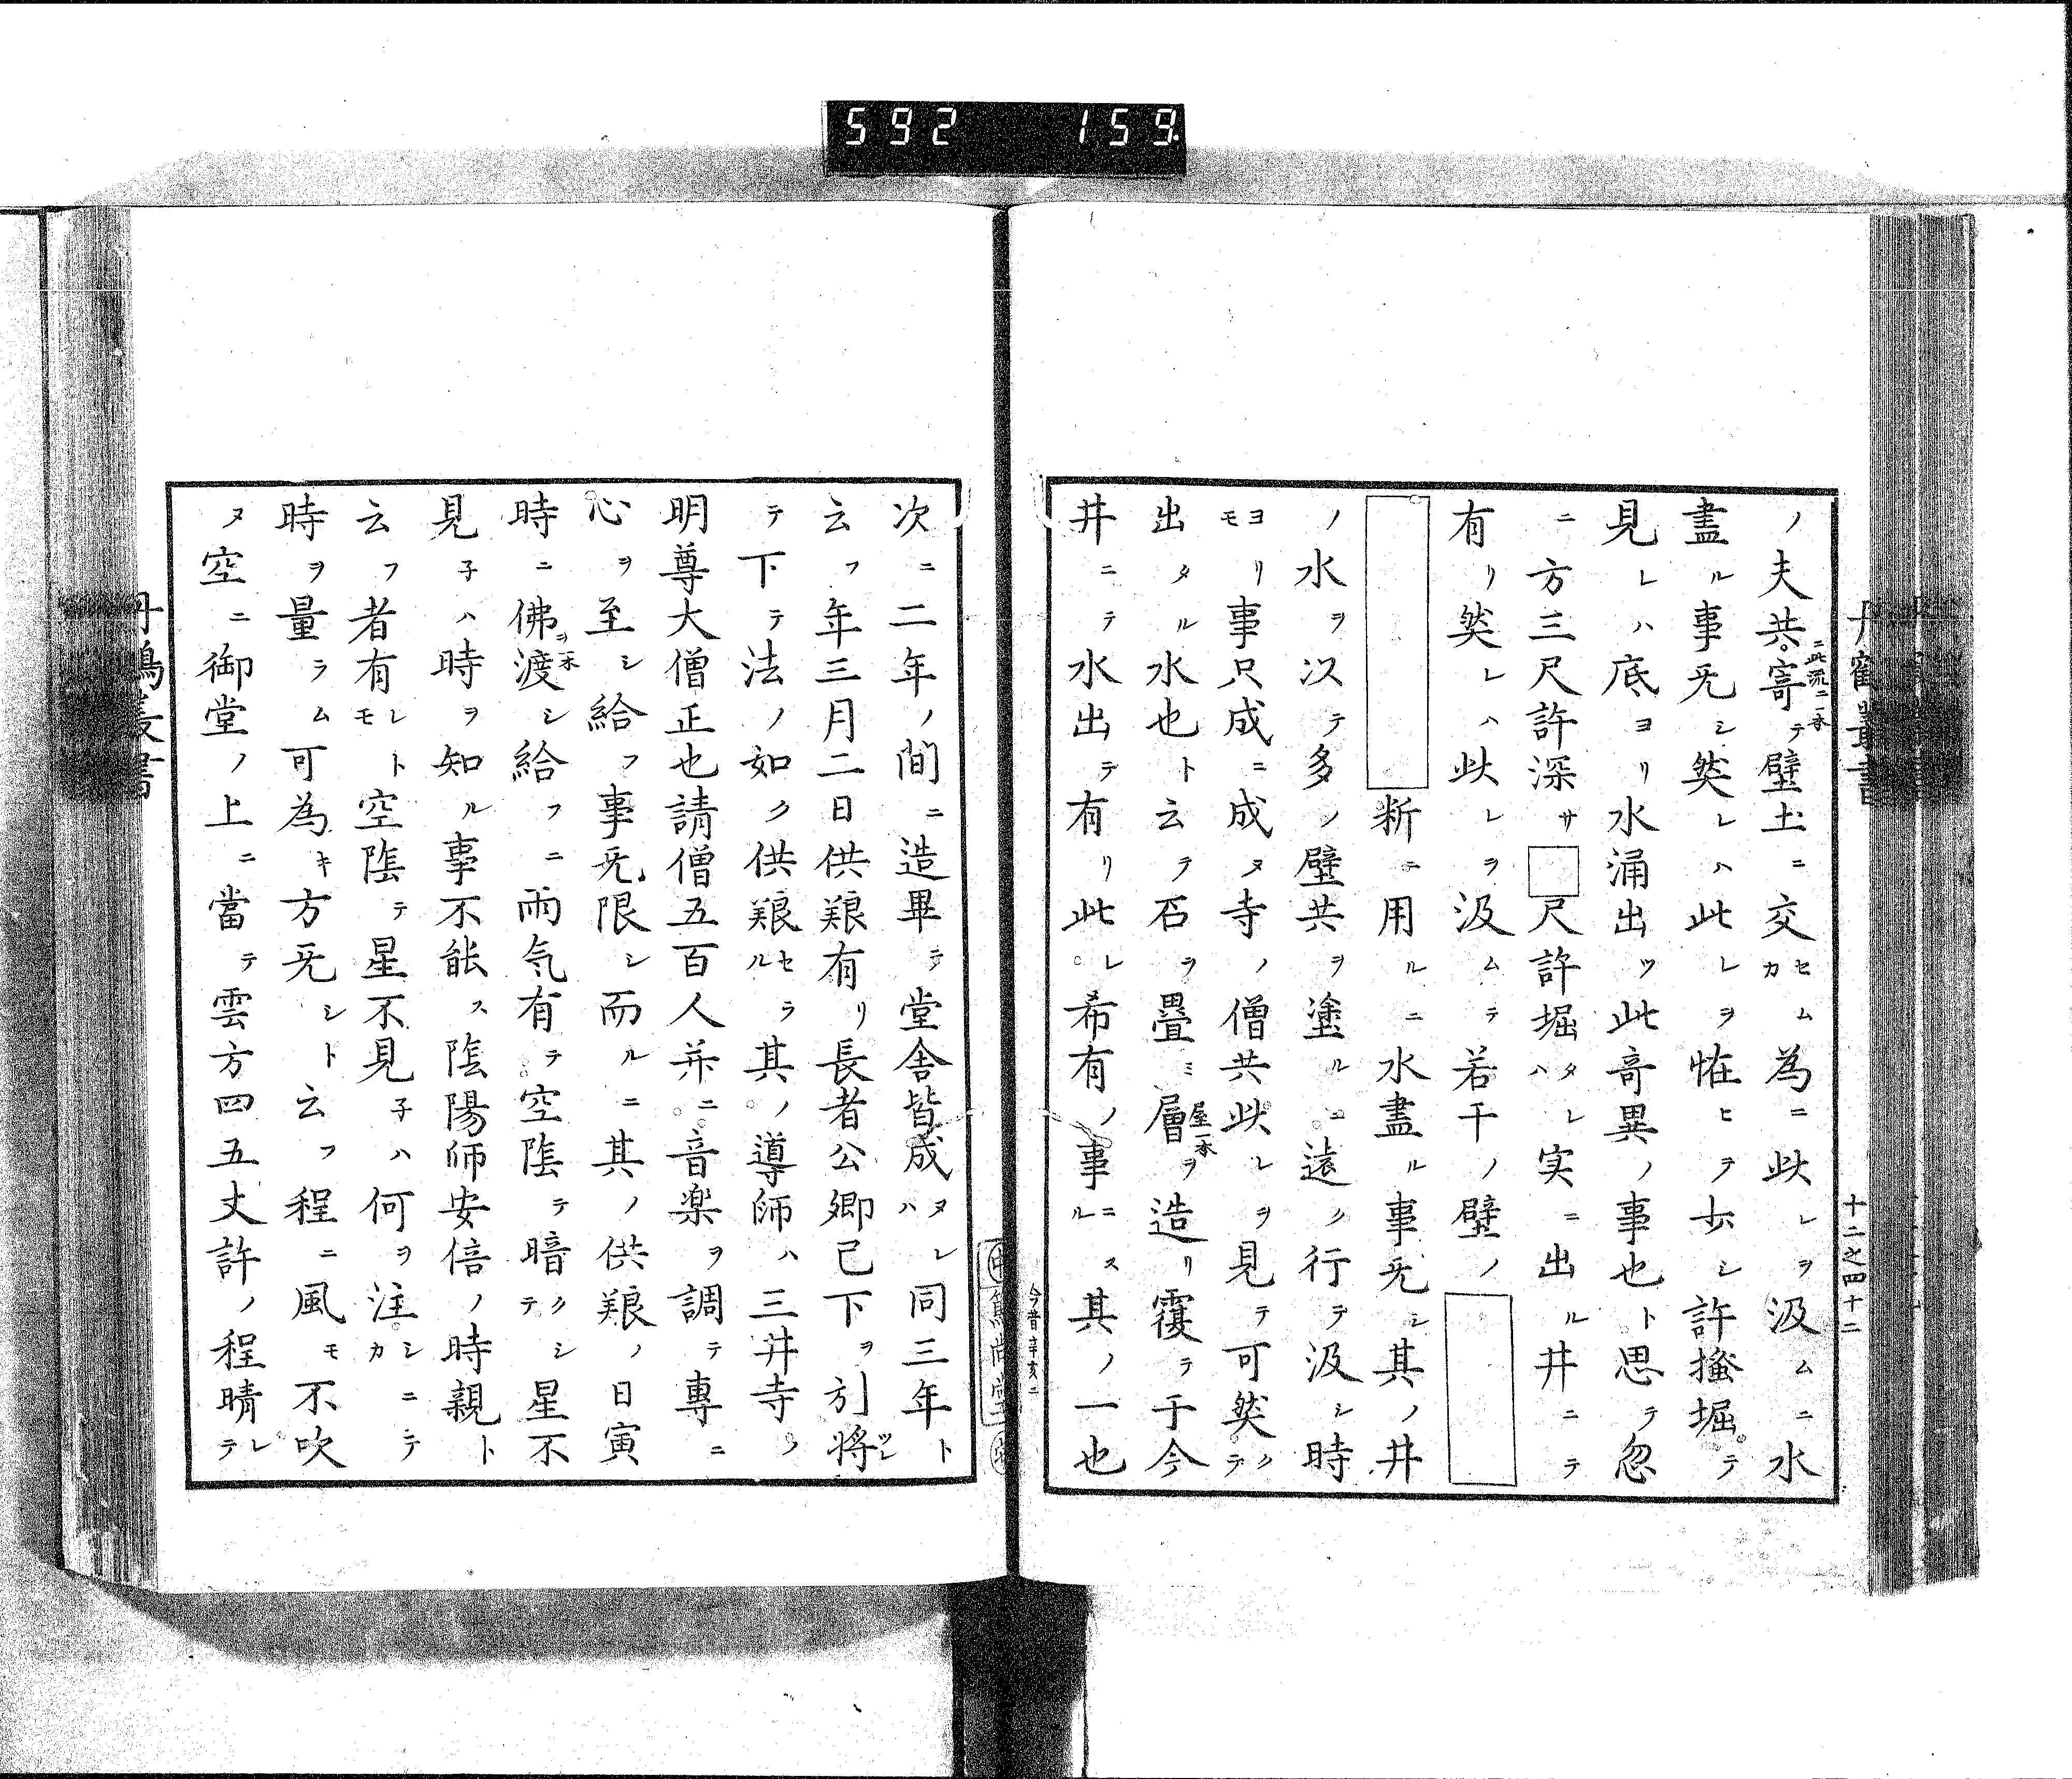 592 159
丹鶴叢書
十二之四十二
ノ夫共寄テ壁土ニ交セムカ為ニ此レヲ汲ムニ水
ニ此流ニ一本
盡ル事旡シ然レハ此レヲ恠ヒテ少シ許搔堀テ
見レハ底ヨリ水涌出ツ此奇異ノ事也ト思テ忽
ニ方三尺許深サ□尺許堀タレハ実ニ出ル井ニテ
有リ然レハ此レヲ汲ムテ若干ノ壁ノ
断ニ用ルニ水盡ル事旡シ其ノ井
ノ水ヲ以テ多ノ壁共ヲ塗ルニ遠ク行テ汲シ時
ヨリモ事只成ニ成ヌ寺ノ僧共此レヲ見テ可然クテ
出タル水也ト云テ石ヲ畳ミ層ヲ造リ覆テ于今
屋一本
井ニテ水出テ有リ此レ希有ノ事ニスル其ノ一也
今昔辛亥ニ
次ニ二年ノ間ニ造畢テ堂舎皆成ヌレハ同三年ト
云フ年三月二日供養有リ長者公卿已下ヲ引将ツレ
テ下テ法ノ如ク供養セラル其ノ導師ハ三井寺ノ
明尊大僧正也請僧五百人并ニ音楽ヲ調テ専ニ
心ヲ至シ給フ事旡限シ而ルニ其ノ供養ノ日寅
時ニ佛渡シ給フニ雨気有テ空陰テ暗クシテ星不
ヲ一本
見子ハ時ヲ知ル事不能ス陰陽師安倍ノ時親ト
云フ者有レトモ空陰テ星不見子ハ何ヲ注シニテカ
時ヲ量ラム可為キ方旡シト云フ程ニ風モ不吹
ヌ空ニ御堂ノ上ニ當テ雲方四五丈許ノ程晴レテ
丹鶴叢書